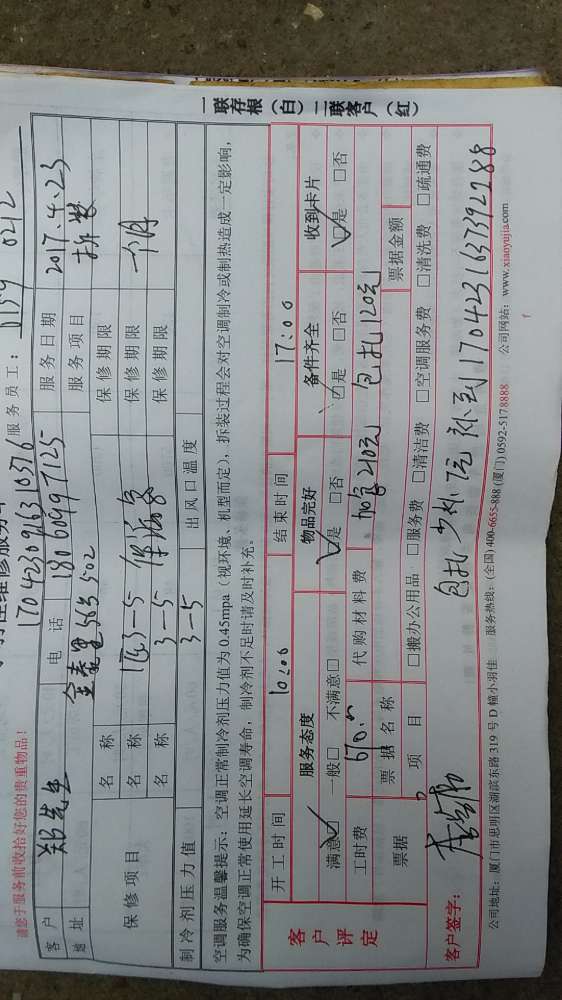 请您于服务前收拾好您的贵重物品！
1704230916310376 服务员工：0159 0212
客户 郑先生 电话 18060997125 服务日期 2017.4.23
地址 金泰里 563 502 服务项目 拆装
保修项目 名称 保修期限
名称 3-5 保修期限 一个月
名称 3-5 保修期限
制冷剂压力值 3-5 出风口温度
空调服务温馨提示：空调正常制冷剂压力值为0.45mpa（视环境、机型而定），拆装过程会对空调制冷或制热造成一定影响，
为确保空调正常使用延长空调寿命，制冷剂不足时请及时补充。
客户评定
开工时间 10:06 结束时间 17:00
服务态度 物品完好 备件齐全 收到卡片
满意□ 一般□ 不满意□ □是 □否 □是 □否 □是 □否
工时费 670.- 代购材料费 加管210元 包扎120元
票据 票据名称 票据金额
项目 □搬办公用品 □服务费 □清洁费 □空调服务费 □清洗费 □疏通费
客户签字： 包扎 补到1704231637392288
公司地址：厦门市思明区湖滨东路319号D幢小羽佳 服务热线：(全国)400-6655-888 (厦门)0592-5178888 公司网站：www.xiaoyujia.com
一联存根（白）二联客户（红）